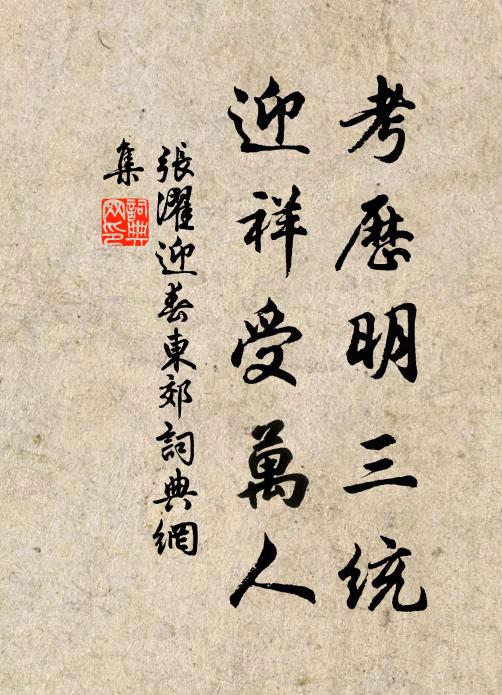 考歷明三統
迎祥受萬人
張濯迎春東郊詞典網
集
詞典
网印